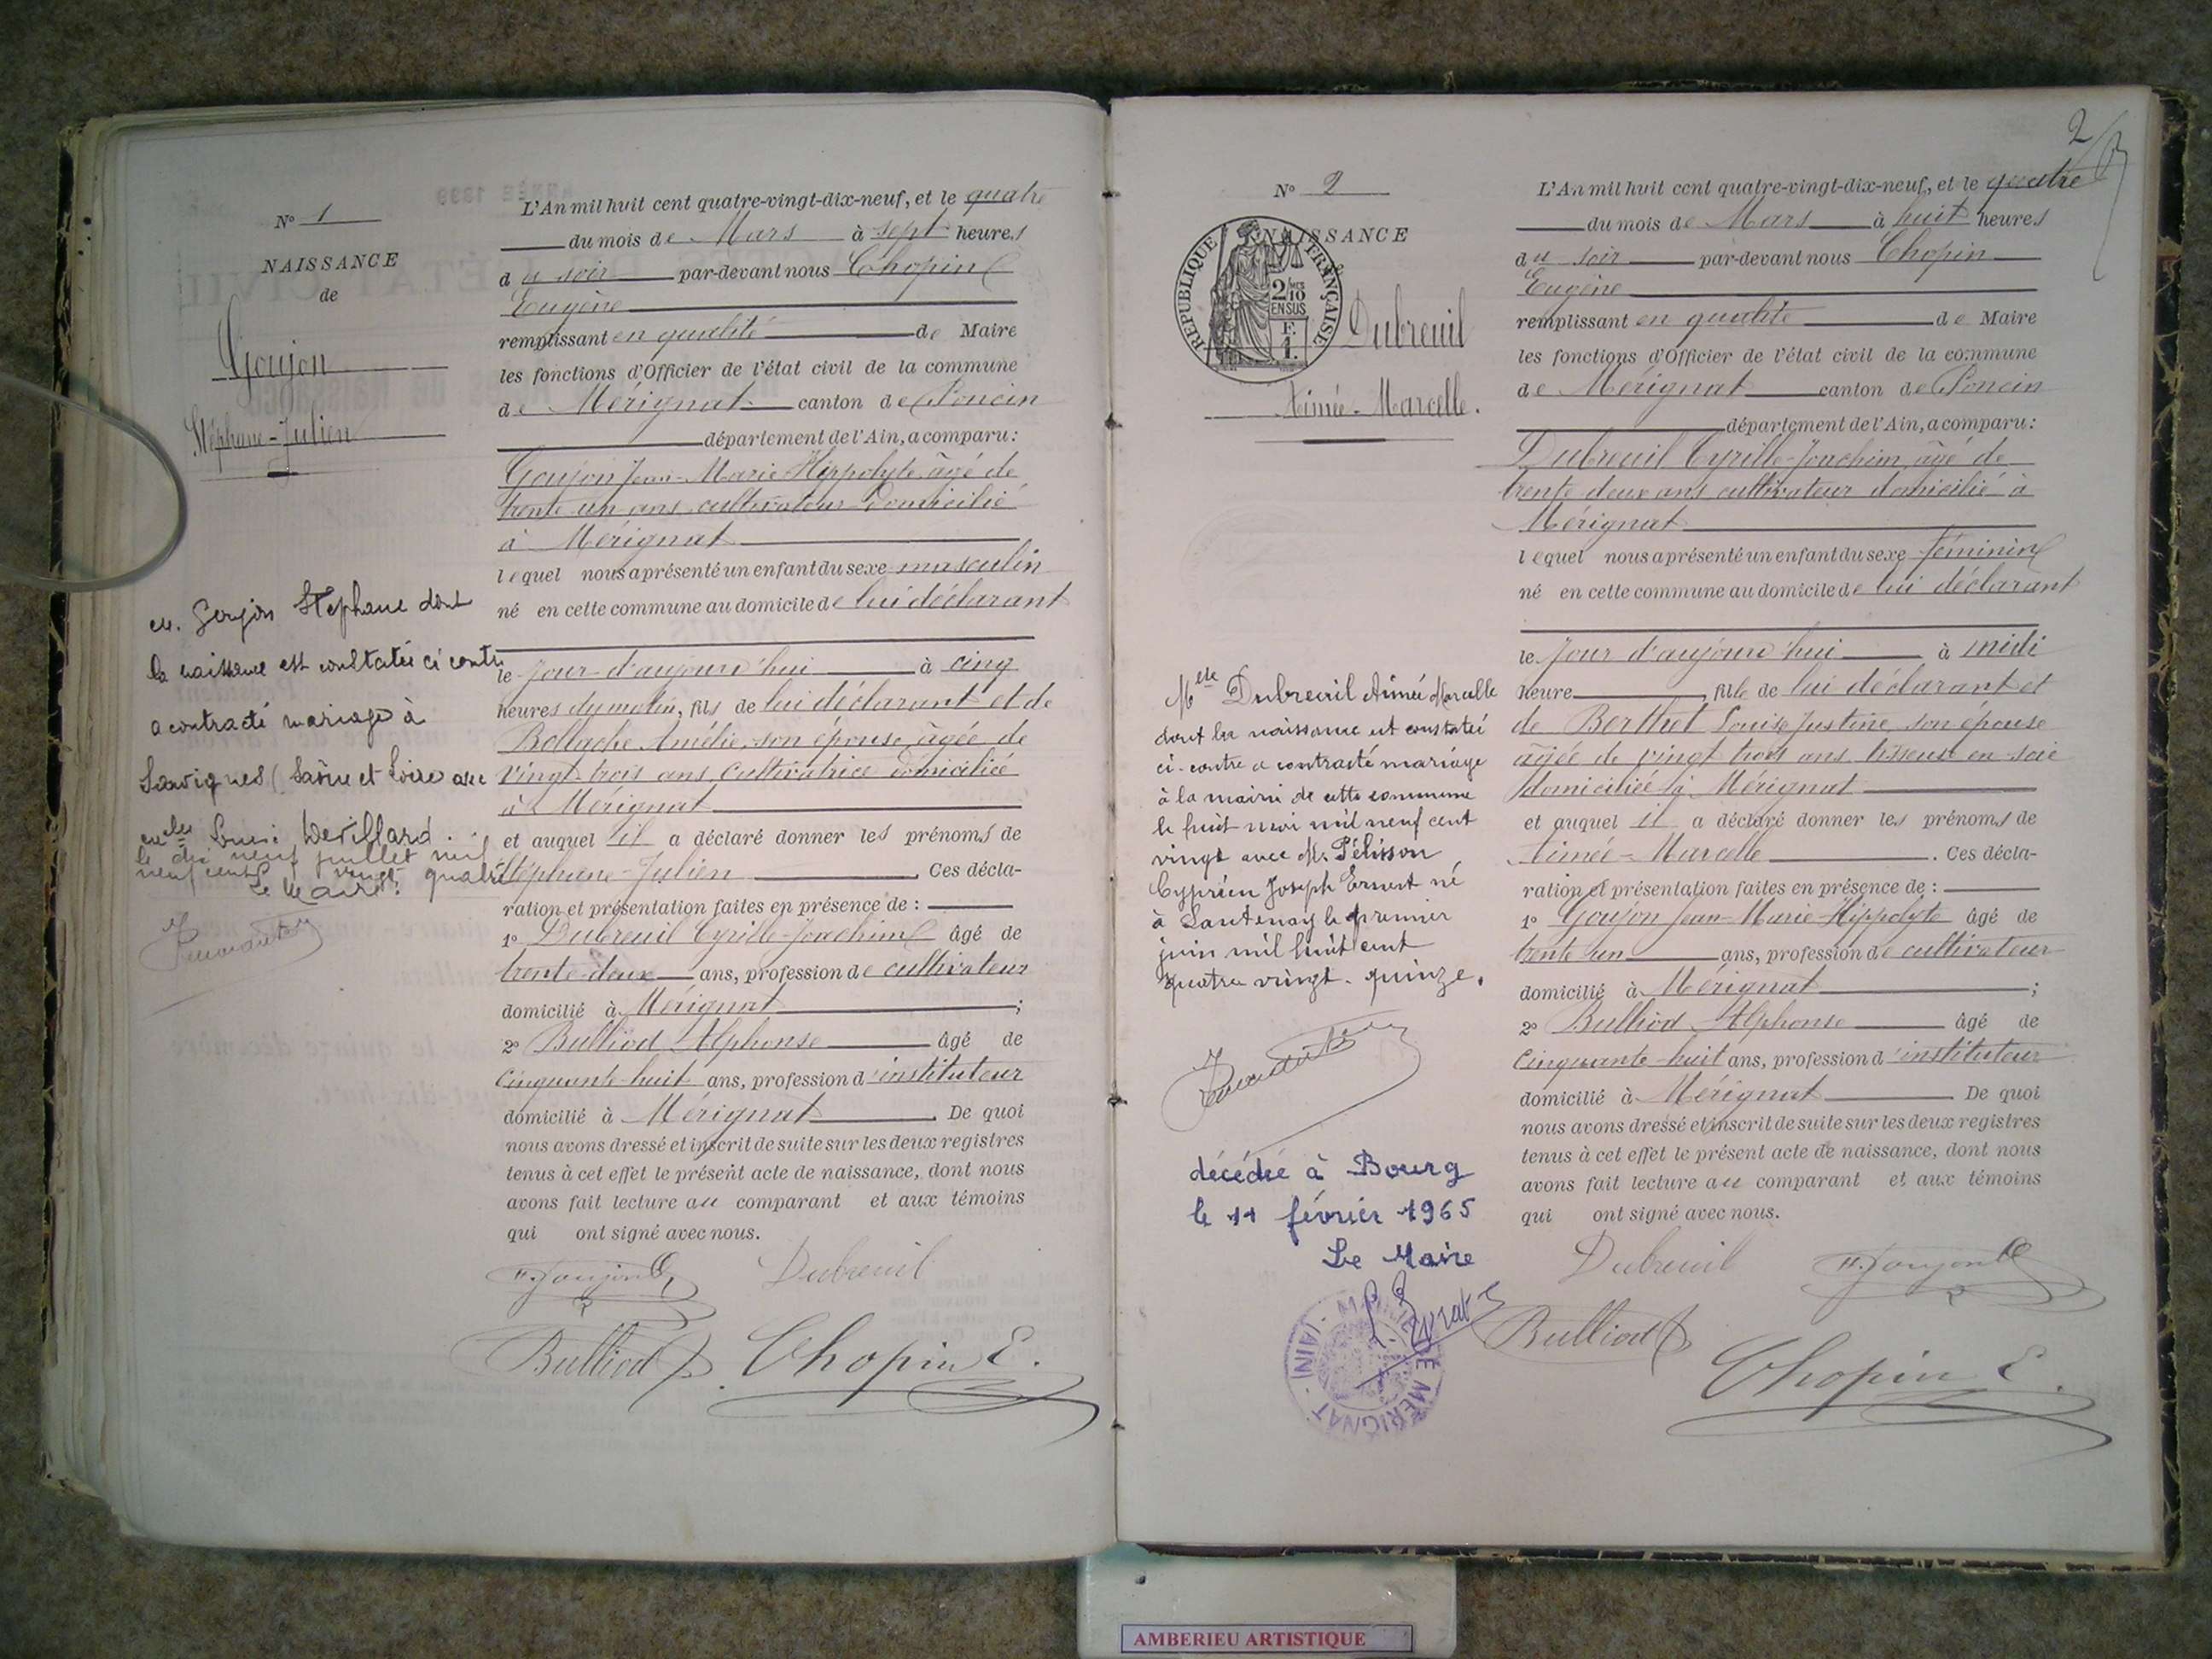 N° 1
NAISSANCE
de
Goujon
Stéphane-Julien
M. Goujon Stéphane dont
la naissance est constatée ci contre
a contracté mariage à
Sanvignes (Saône et Loire) avec
melle Devillard
le dix neuf juillet mil
neuf cent vingt quatre
Le Maire
L'An mil huit cent quatre-vingt-dix-neuf, et le quatre
du mois de Mars à sept heures
du soir par-devant nous Chopin
Eugène
remplissant en qualité de Maire
les fonctions d'Officier de l'état civil de la commune
de Mérignat canton de Poncin
département de l'Ain, a comparu :
Goujon Jean-Marie Hippolyte âgé de
trente un ans cultivateur domicilié
à Mérignat
lequel nous a présenté un enfant du sexe masculin
né en cette commune au domicile de lui déclarant
le jour d'aujourd'hui à cinq
heures du matin, fils de lui déclarant et de
Amélie, son épouse âgée de
vingt trois ans cultivatrice domiciliée
à Mérignat
et auquel il a déclaré donner les prénoms de
Stéphane-Julien. Ces décla-
ration et présentation faites en présence de :
1° Dubreuil Cyrille-Joachim âgé de
trente-deux ans, profession de cultivateur
domicilié à Mérignat ;
2° Bulliod Alphonse âgé de
cinquante-huit ans, profession d'instituteur
domicilié à Mérignat. De quoi
nous avons dressé et inscrit de suite sur les deux registres
tenus à cet effet le présent acte de naissance, dont nous
avons fait lecture au comparant et aux témoins
qui ont signé avec nous.
H. Goujon Dubreuil
Bulliod Chopin E.
2
N° 2
NAISSANCE
RÉPUBLIQUE FRANÇAISE
2/10
EN SUS
F.
1.
Dubreuil
Aimée-Marcelle.
Melle Dubreuil Aimée Marcelle
dont la naissance est constatée
ci-contre a contracté mariage
à la mairie de cette commune
le huit mai mil neuf cent
vingt avec M. Pélisson
Cyprien Joseph Ernest né
à Lantenay le premier
juin mil huit cent
quatre vingt-quinze.
décédée à Bourg
le 11 février 1965
Le Maire
MAIRIE DE MERIGNAT (AIN)
L'An mil huit cent quatre-vingt-dix-neuf, et le quatre
du mois de Mars à huit heures
du soir par-devant nous Chopin
Eugène
remplissant en qualité de Maire
les fonctions d'Officier de l'état civil de la commune
de Mérignat canton de Poncin
département de l'Ain, a comparu :
Dubreuil Cyrille-Joachim, âgé de
trente deux ans cultivateur domicilié à
Mérignat
lequel nous a présenté un enfant du sexe féminin
né en cette commune au domicile de lui déclarant
le jour d'aujourd'hui à midi
heure, fille de lui déclarant et
de Berthet Louise Justine, son épouse
âgée de vingt trois ans tisseuse en soie
domiciliée à Mérignat
et auquel il a déclaré donner les prénoms de
Aimée-Marcelle. Ces décla-
ration et présentation faites en présence de :
1° Goujon Jean-Marie-Hippolyte âgé de
trente un ans, profession de cultivateur
domicilié à Mérignat ;
2° Bulliod Alphonse âgé de
cinquante-huit ans, profession d'instituteur
domicilié à Mérignat. De quoi
nous avons dressé et inscrit de suite sur les deux registres
tenus à cet effet le présent acte de naissance, dont nous
avons fait lecture au comparant et aux témoins
qui ont signé avec nous.
Dubreuil H. Goujon
Bulliod
Chopin E.
AMBERIEU ARTISTIQUE